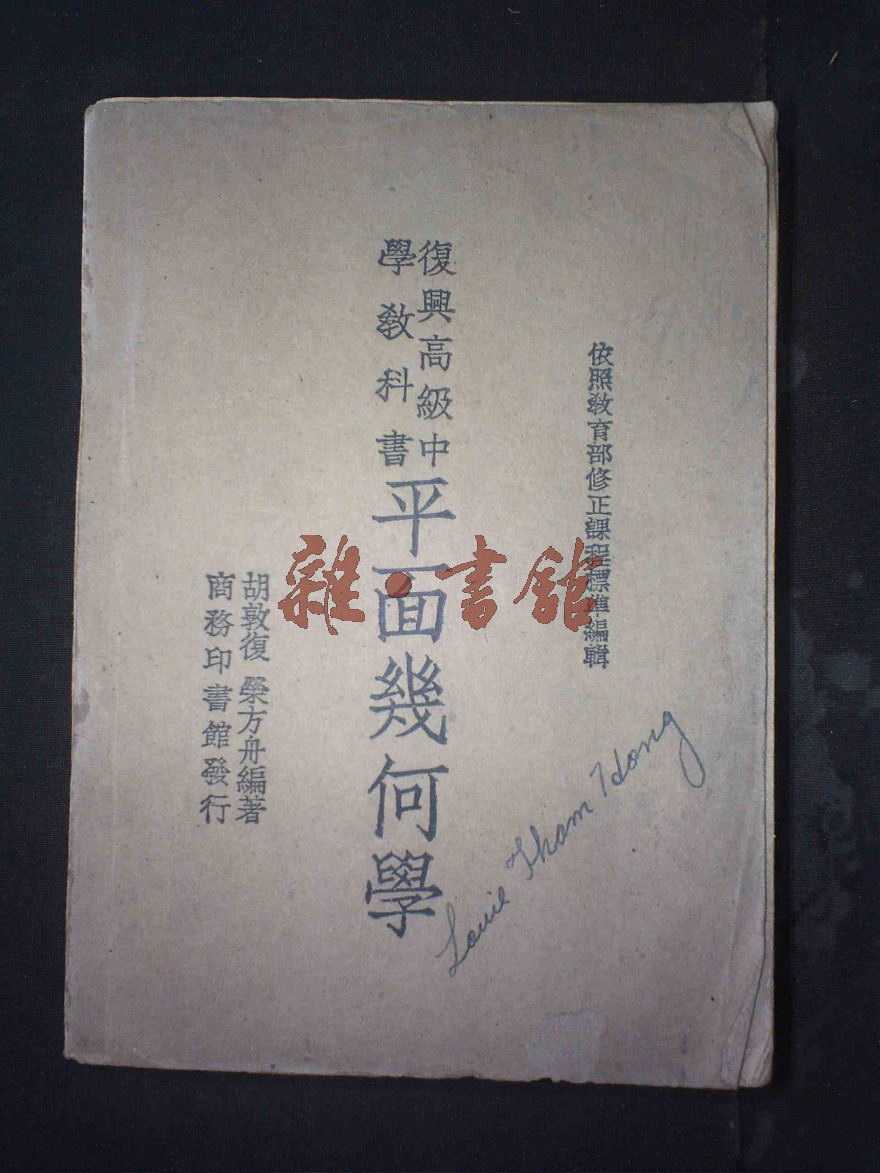 依照敎育部修正課程標準編輯
復興高級中
學敎科書
平面幾何學
胡敦復 榮方舟編著
商務印書館發行
Louie Tham Hong
雜·書館